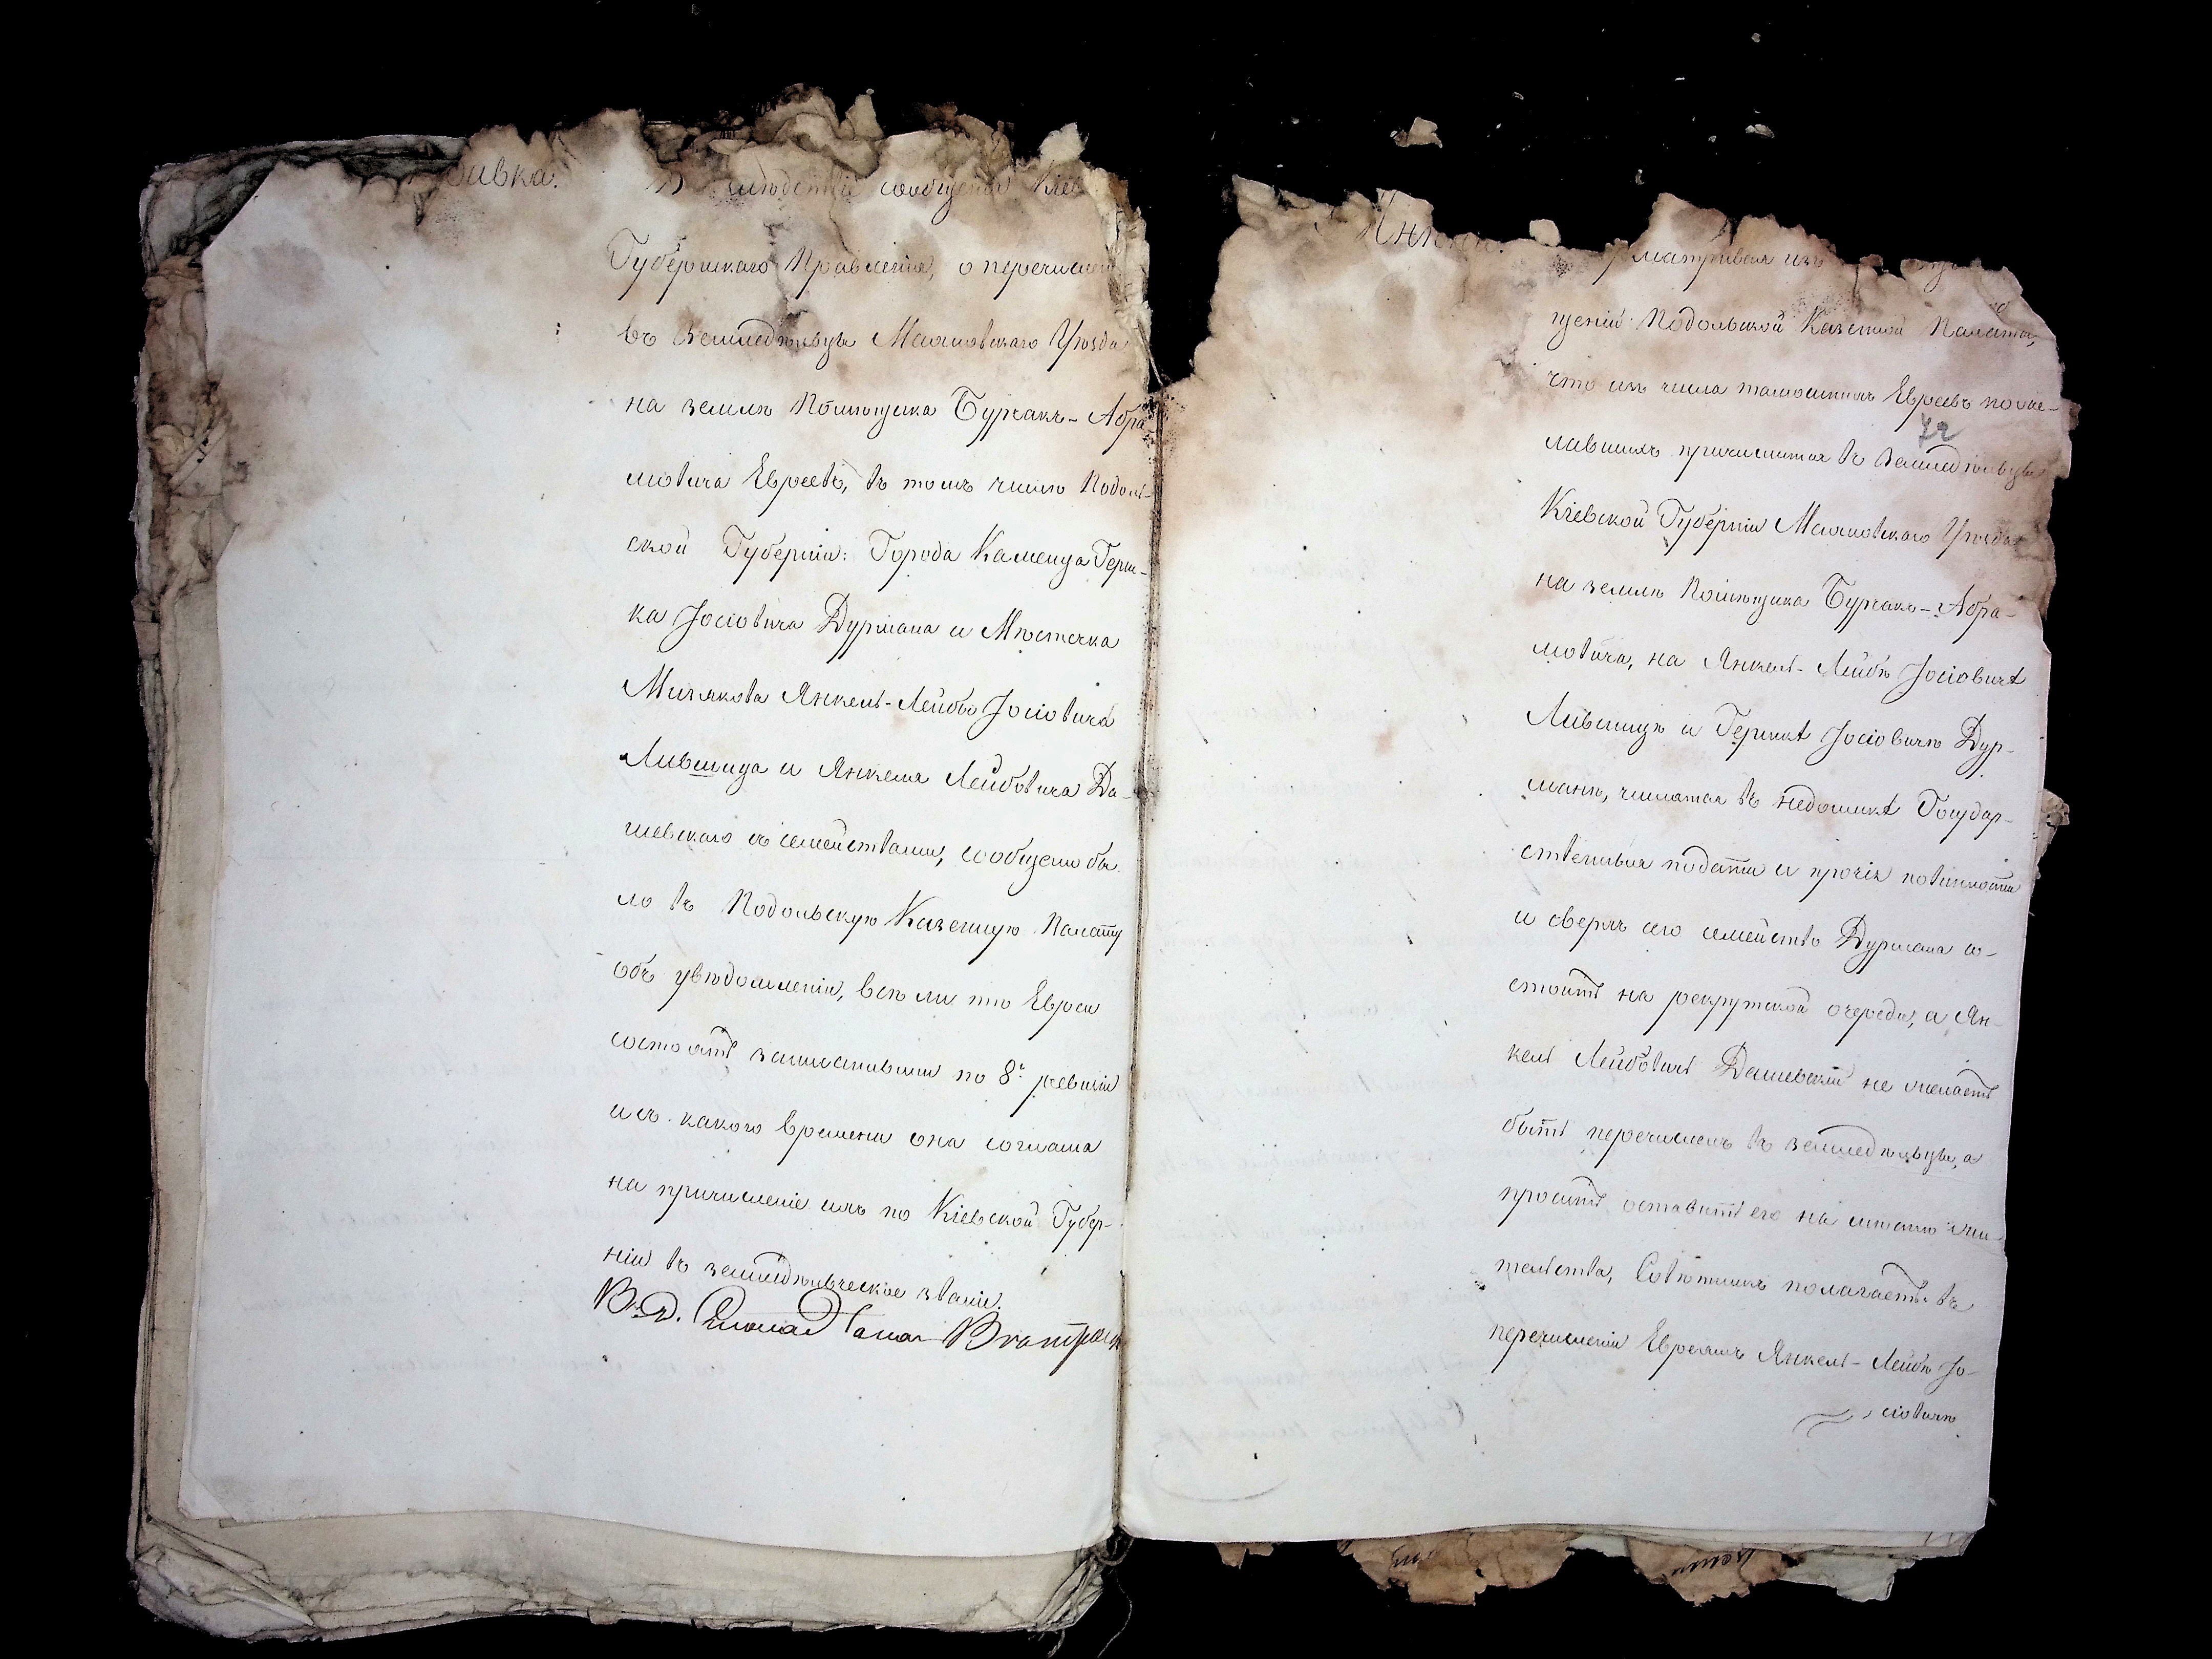 равка.
слѣдствіе сообщенія Кіев
Губернскаго Правленія, о перечислен
въ Земледѣльцы Махновскаго Уѣзда
на землю Помѣщика Бурчакъ-Абра-
мовича Евреевъ, въ томъ числѣ Подоль-
ской Губерніи: Города Каменца Герш-
ка Іосіовича Дурмана и Мѣстечка
Мичякова Янкель-Лейбы Іосіовича
Лившица и Янкеля Лейбовича Да-
шевскаго съ семействами, сообщено бы
ло въ Подольскую Казенную Палату
объ увѣдомленіи, всѣ ли тѣ Евреи
состоятъ записанными по 8й ревизіи
и съ какого времени она согласна
на причисленіе ихъ по Кіевской Губер-
ніи въ земледѣльческое званіе.
В. Д.
Мнѣніе.
матривая изъ
щеній Подольской Казенной Палаты,
что изъ числа тамошнихъ Евреевъ поже-
72
лавшихъ причислится въ Земледѣльцы
Кіевской Губерніи Махновскаго Уѣзда
на землю Помѣщика Бурчакъ-Абра-
мовича, на Янкель-Лейбѣ Іосіовичѣ
Лившицѣ и Гершкѣ Іосіовичѣ Дур-
манѣ, числятся въ недоимкѣ Государ-
ственныя подати и прочія повинности
и сверхъ сего семейство Дурмана со-
стоитъ на рекрутской очереди, а Ян-
кель Лейбовичъ Дашевскій не желаетъ
быть перечисленъ въ земледѣльцы, а
проситъ оставить его на мѣстѣ жи-
тельства, Совѣтникъ полагаетъ: въ
перечисленіи Евреямъ Янкель-Лейбѣ Іо-
сіовичѣ